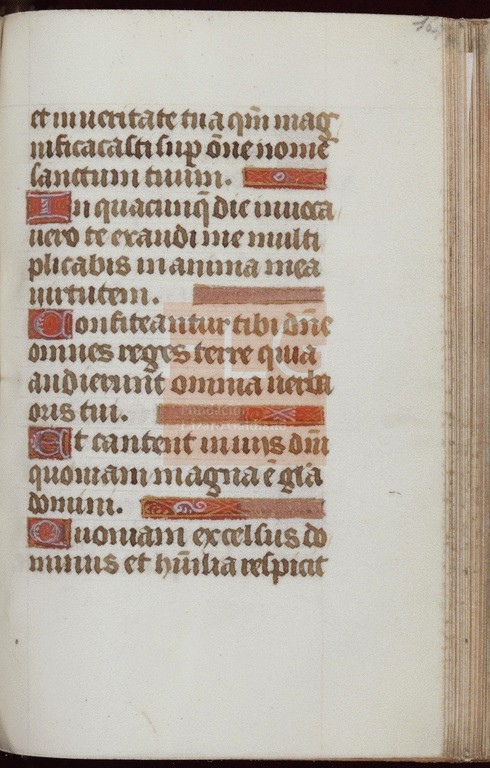 et in ueritate tua qm̄ mag
nificacasti sup oē nomē
sanctum tuum.
In quacunq̄ die inuoca
uero te exaudi me multi
plicabis in anima mea
uirtutem.
Confiteantur tibi dn̄e
omnes reges terre quia
audierunt omnia uerba
oris tui.
Et cantent in uijs dn̄i
quoniam magna ē gl̄a
domini.
Quoniam excelsus do
minus et hūilia respicit
Fundación
Lázaro Galdiano